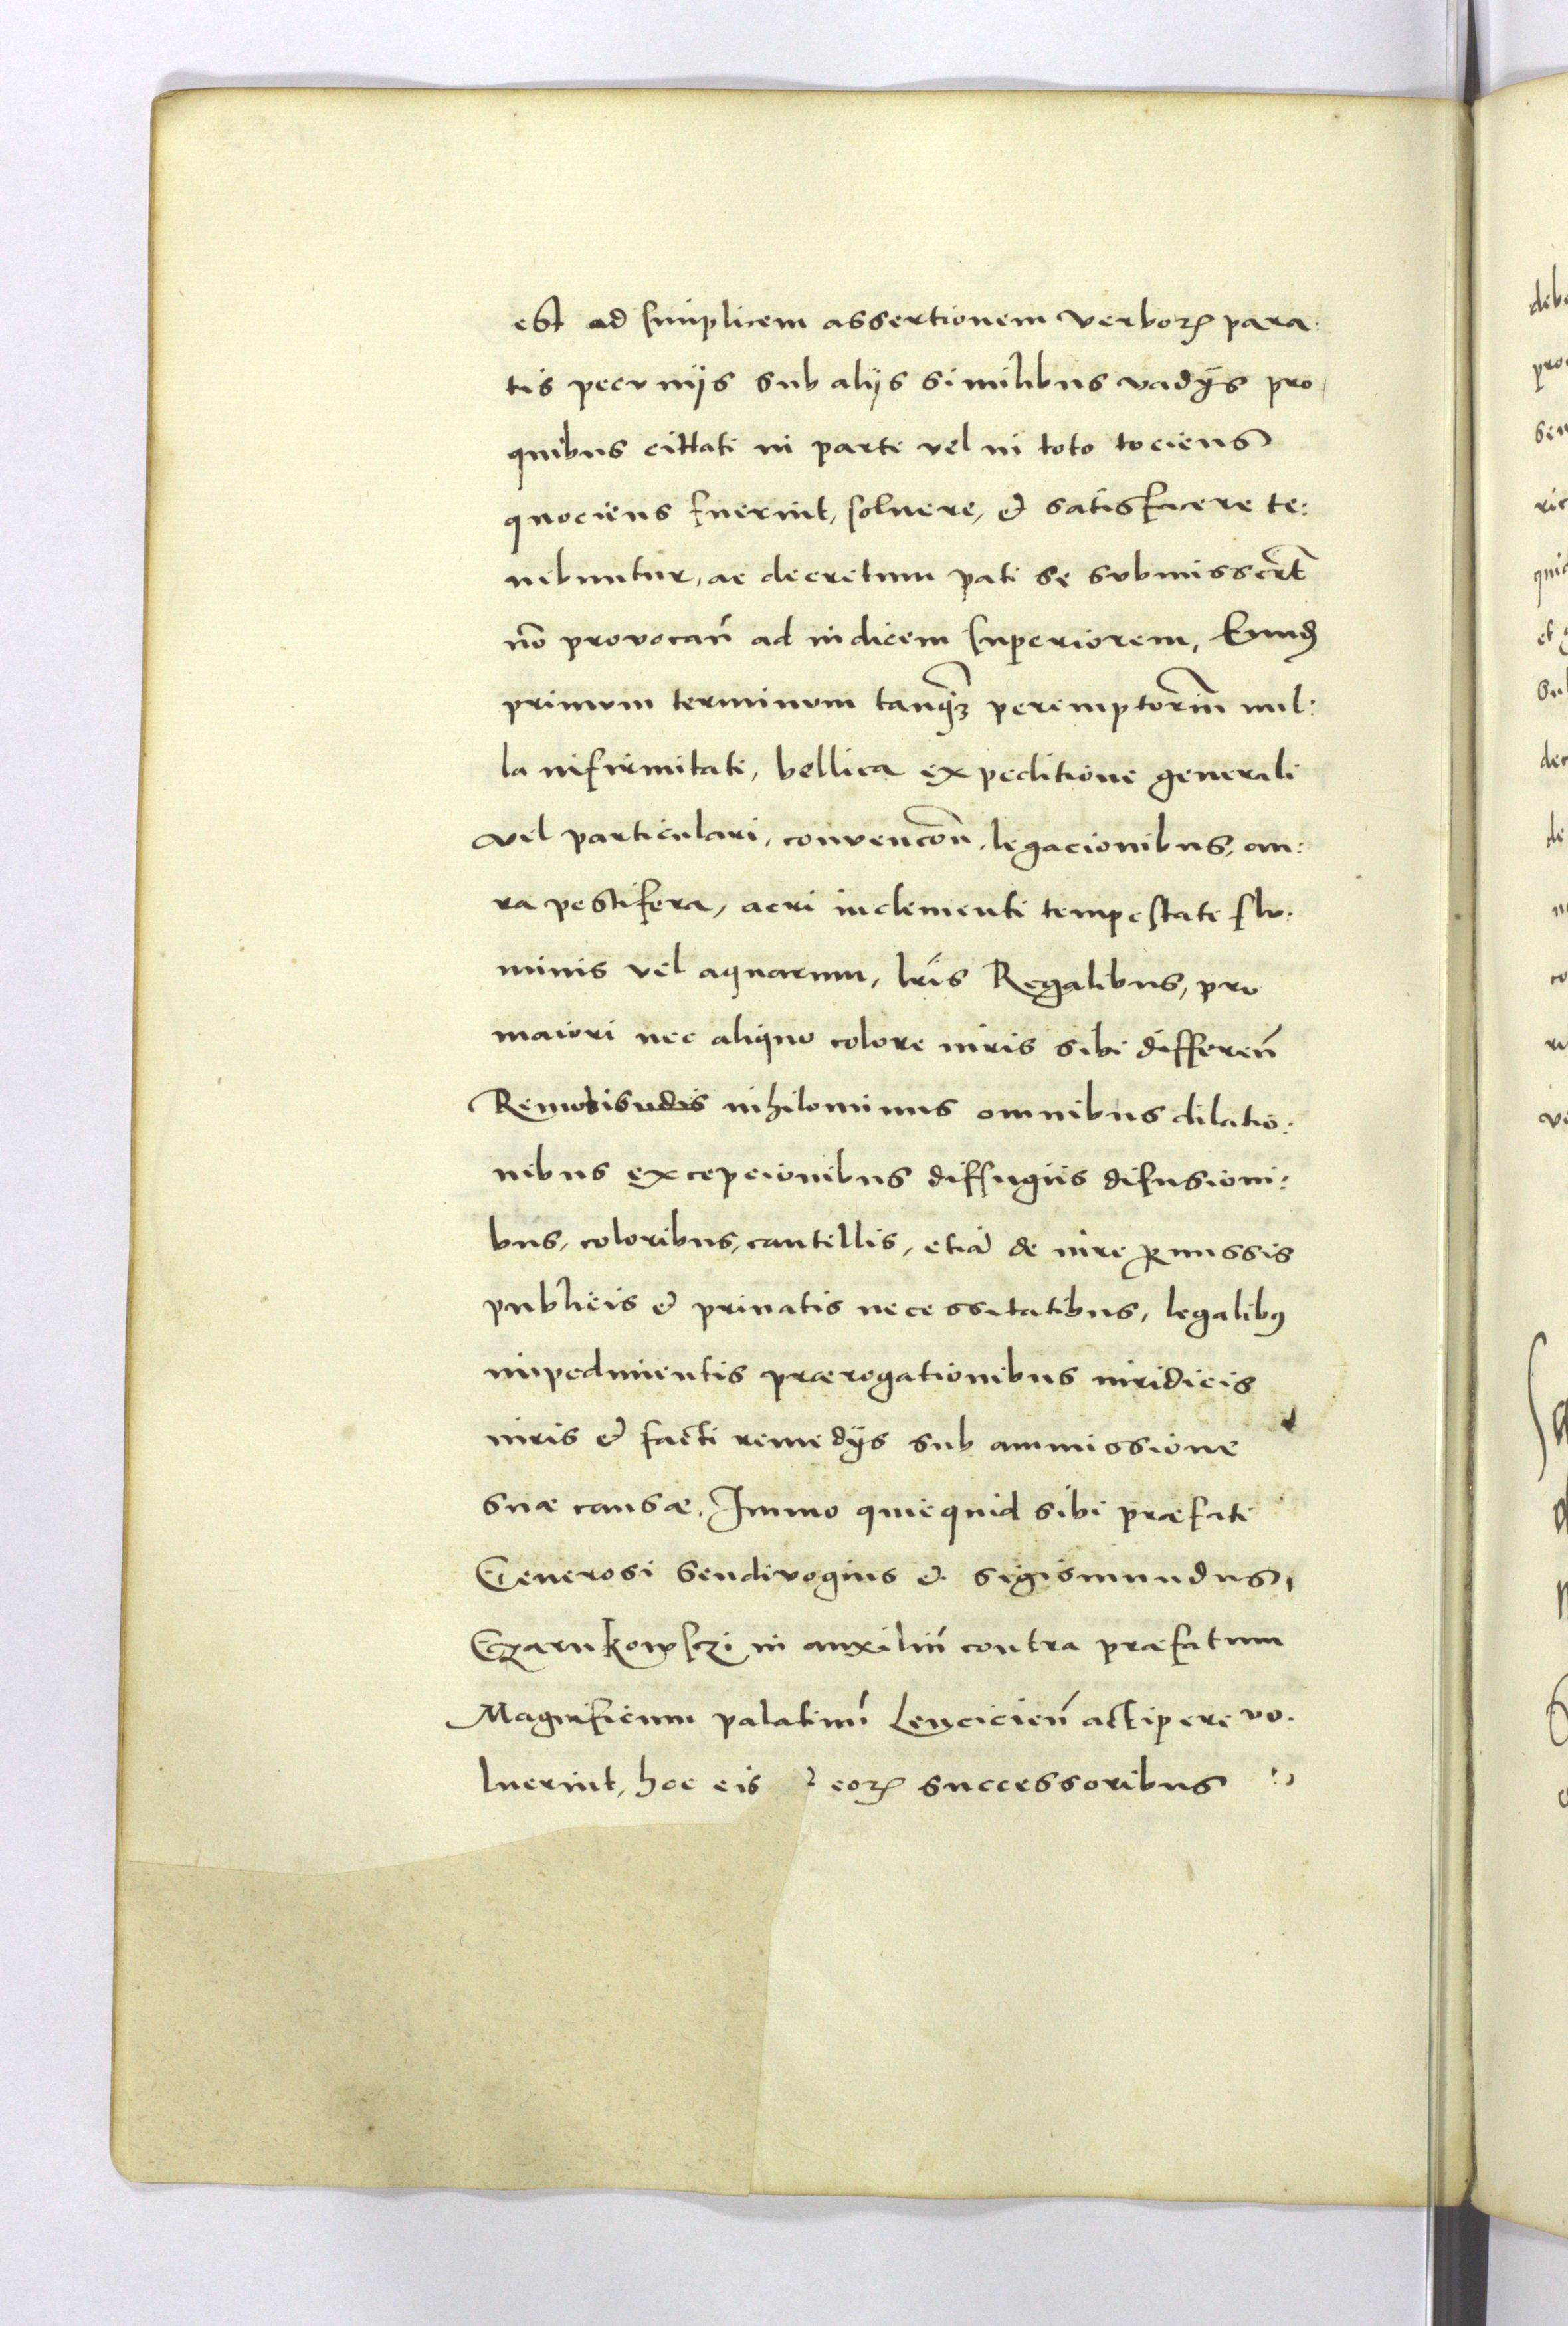 est ad simplicem assertionem verboꝝ para:
tis pecuniis sub alijs similibus vadijs pro
quibus cittati in parte vel in toto tociens
quociens fuerint, soluere, et satisfacere te:
nebuntur, ac decretum pati se submisserūt
nō provocan̄ ad iudicem superiorem, Eumqꝫ
primum terminum tanqꝫ peremptoriū nul:
la infirmitate, bellica expeditione generali
vel particulari, convencōn̄, legacionibus, au:
ra pestifera, aeri inclementi tempestate flu:
minis vel aquarum, lr̄is Regalibus, pro
maiori nec aliquo colore iuris sibi differen̄
Remotis nihilominus omnibus dilatio:
nibus excepcionibus diffugiis difusioni:
bus, coloribus, cautellis, etiā de iure ꝑmissis
publicis et priuatis necessitatibus, legalibꝰ
impedimentis prærogationibus iuridicis
iuris et facti remedijs sub ammissione
suæ causæ. Immo quicquid sibi præfati
Generosi Sendivogius et Sigismundus,
Czarnkowsczi in auxiliū contra præfatum
Magnificum palatinū Lencicien̄ accipere vo.
luerint, hoc eis eoꝝ successoribus